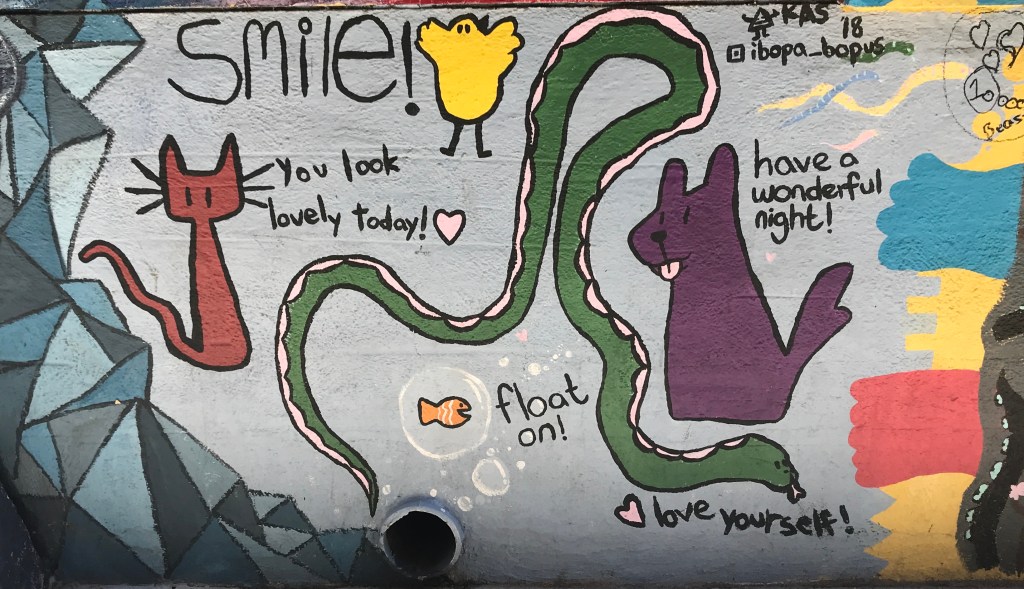 Smile!
KAS '18
ibopa_bopus
You look
lovely today!
have a
wonderful
night!
float
on!
love yourself!